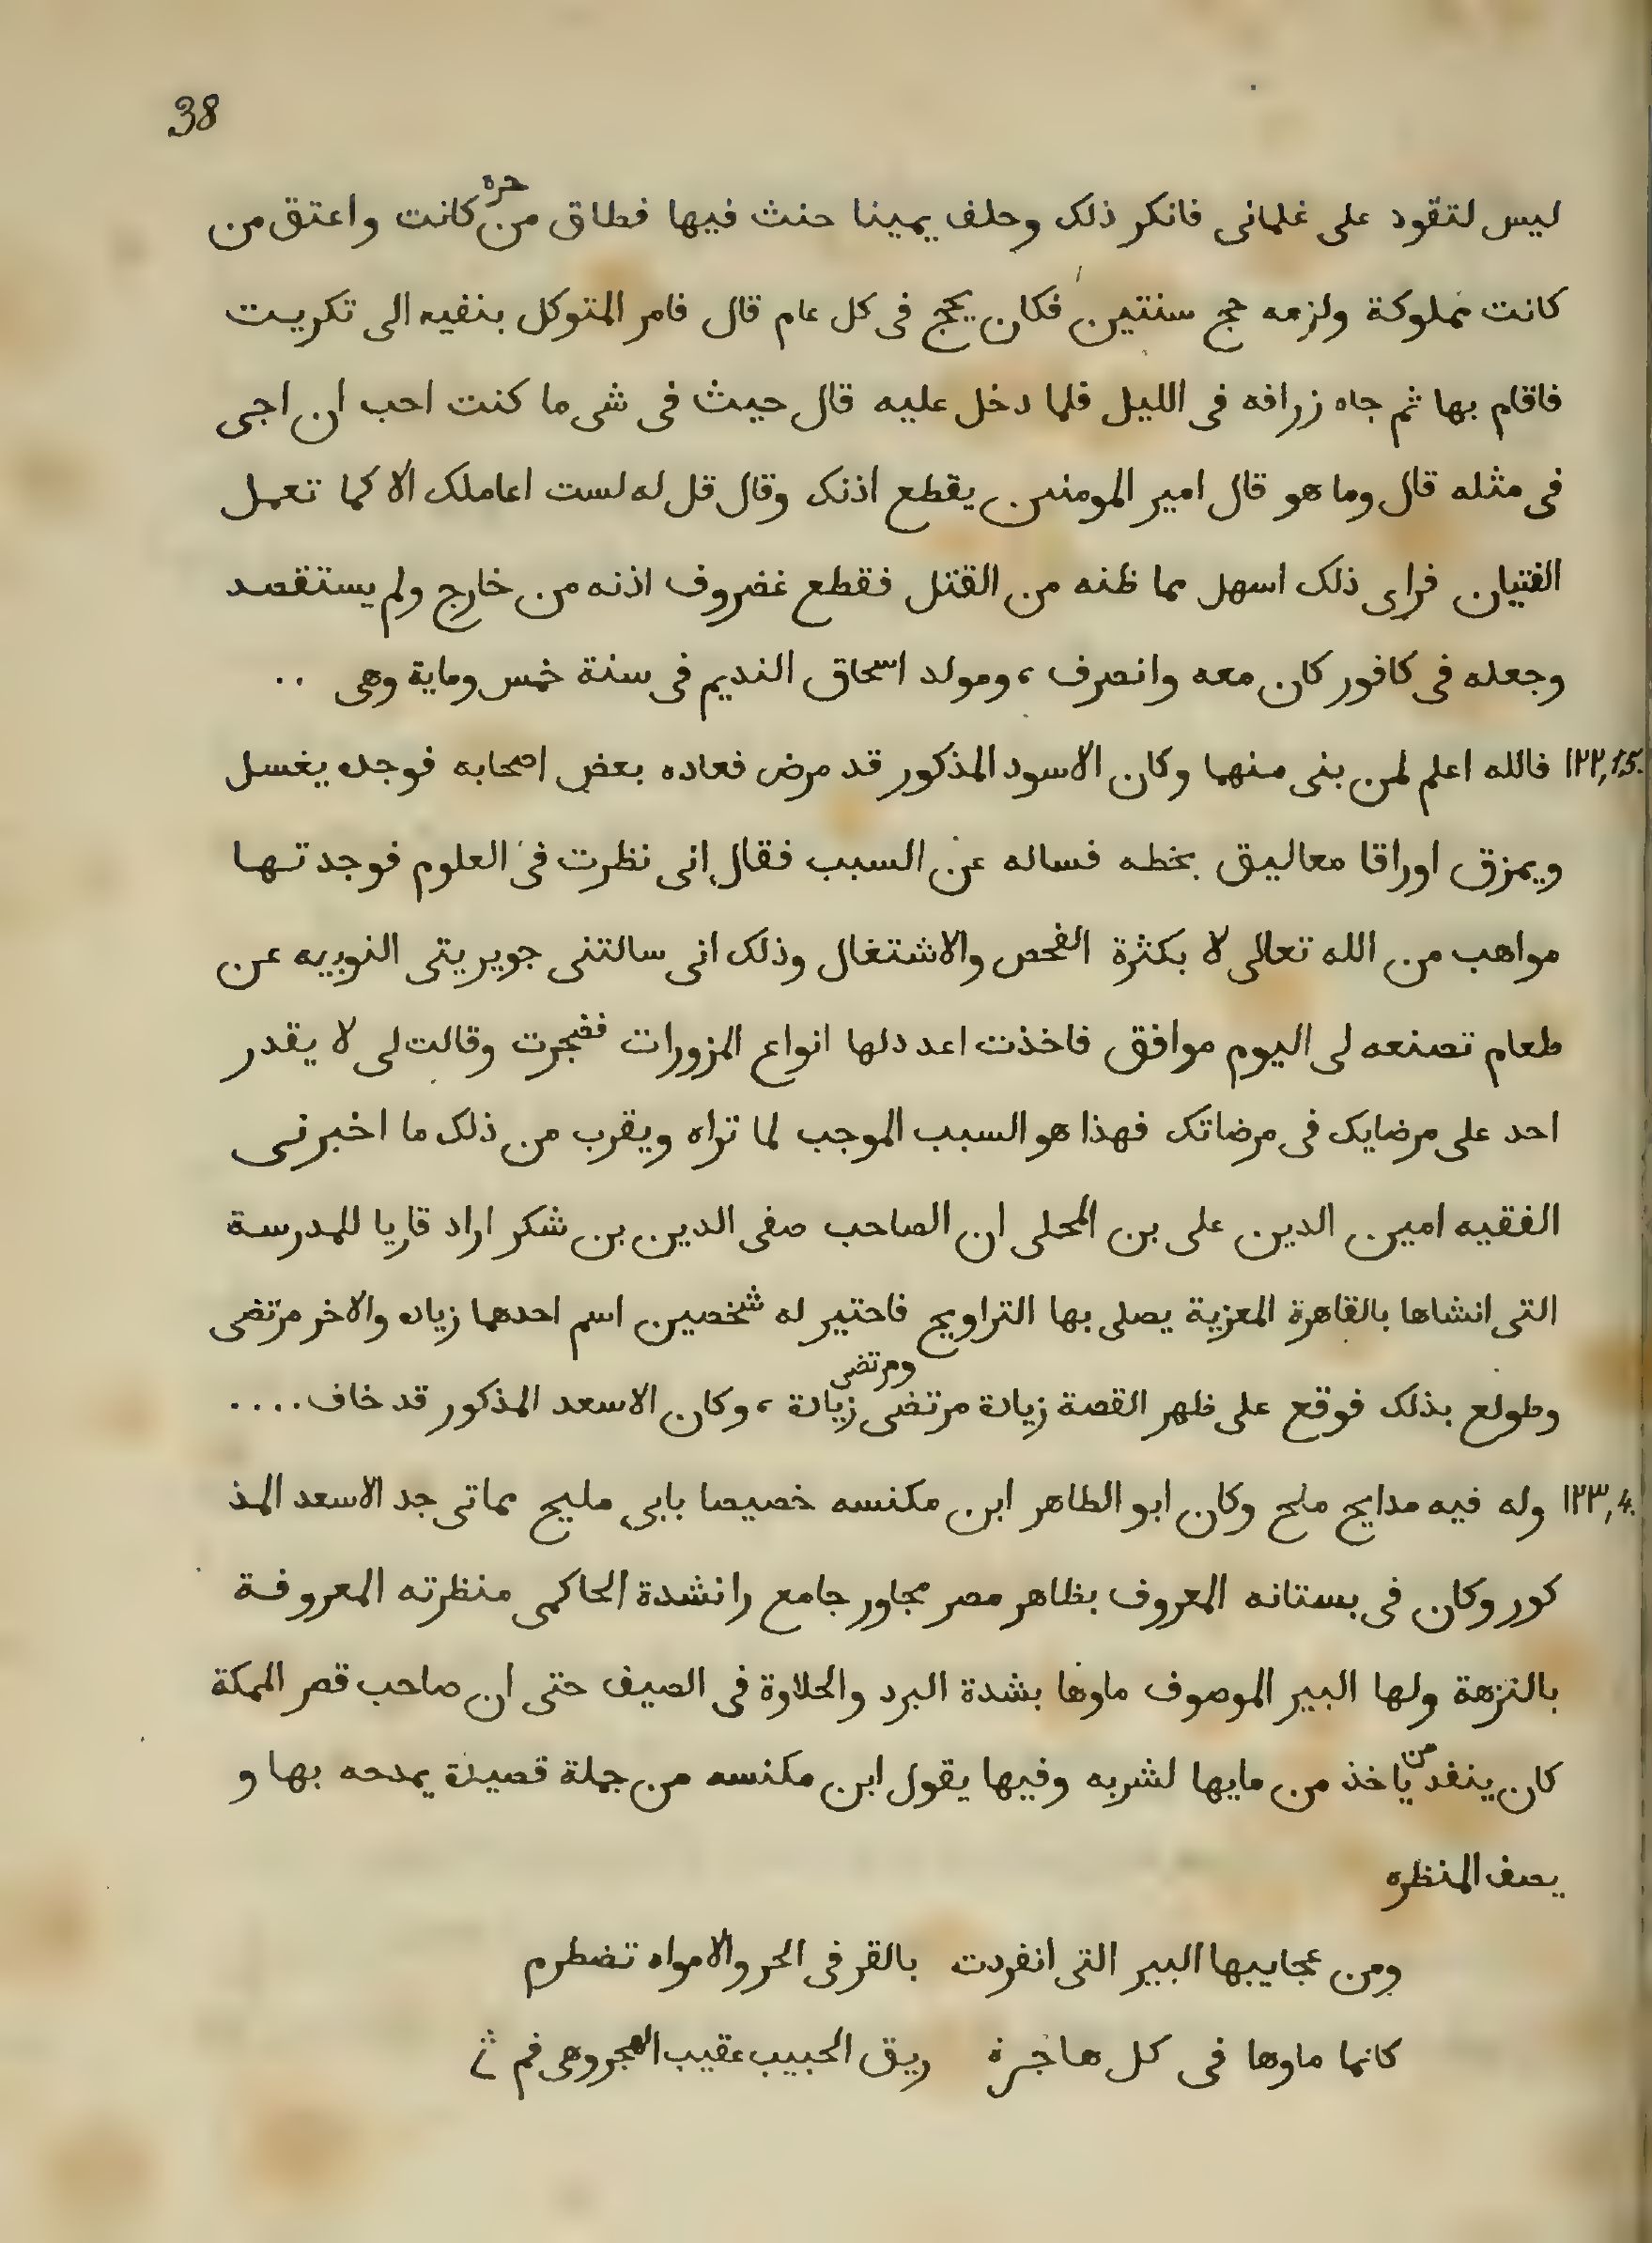 38
حره
ليس لتقود على غلمانى فانكر ذلك وحلف يمينا حنث فيها فطلق من كانت واعتق من
كانت مملوكة ولزمه حج سنتين فكان يحج فى كل عام قال فامر المتوكل بنفيه الى تكريت
فاقام بها ثم جاه زرافه فى الليل فلما دخل عليه قال حيث فى شى ما كنت احب ان اجى
فى مثله قال وما هو قال امير المومنين يقطع اذنك وقال قل له لست اعاملك الا كما تعمل
الفتيان فراى ذلك اسهل مما ظنه من القتل فقطع غضروف اذنه من خارج ولم يستقصد
وجعله فى كافور كان معه وانصرف ، ومولد اسحاق النديم فى سنة خمس وماية وهى ..
١٢٢,15. فالله اعلم لمن بنى منهما وكان الاسود المذكور قد مرض فعاده بعض اصحابه فوجده يغسل
ويمزق اوراقا معاليق بخطه فساله عن السبب فقال انى نظرت فى العلوم فوجدتها
مواهب من الله تعالى لا بكثرة الفحص والاشتغال وذلك انى سالتنى جويريتى النوبيه عن
طعام تصنعه لى اليوم موافق فاخذت اعدد لها انواع المزورات فضجرت وقالت لى لا يقدر
احد على مرضايك فى مرضاتك فهذا هو السبب الموجب لما تراه ويقرب من ذلك ما اخبرنى
الفقيه امين الدين على بن المحلى ان الصاحب صفى الدين بن شكر اراد قاريا للمدرسة
التى انشاها بالقاهرة المعزية يصلى بها التراويح فاحتير له شخصين اسم احدهما زياده والاخر مرتضى
ومرتضى
وطولع بذلك فوقع على ظهر القصة زيادة مرتضى زيادة ، وكان الاسعد المذكور قد خاف ....
١٢٣,4. وله فيه مدايح ملح وكان ابو الطاهر ابن مكنسه خصيصا بابى مليح مماتى جد الاسعد المذ
كور وكان فى بستانه المعروف بظاهر مصر مجاور جامع رانشدة الحاكمى منظرته المعروفة
بالنزهة ولها البير الموصوف ماوها بشدة البرد والحلاوة فى الصيف حتى ان صاحب قصر المملكة
من
كان ينفد ياخذ من مايها لشربه وفيها يقول ابن مكنسه من جملة قصيدة يمدحه بها و
يصف المنظره
ومن عجايبها البير التى انفردت بالقر فى الحر والامواه تضطرم
كانما ماوها فى كل هاجرة ريق الحبيب عقيب الهجر وهى فم